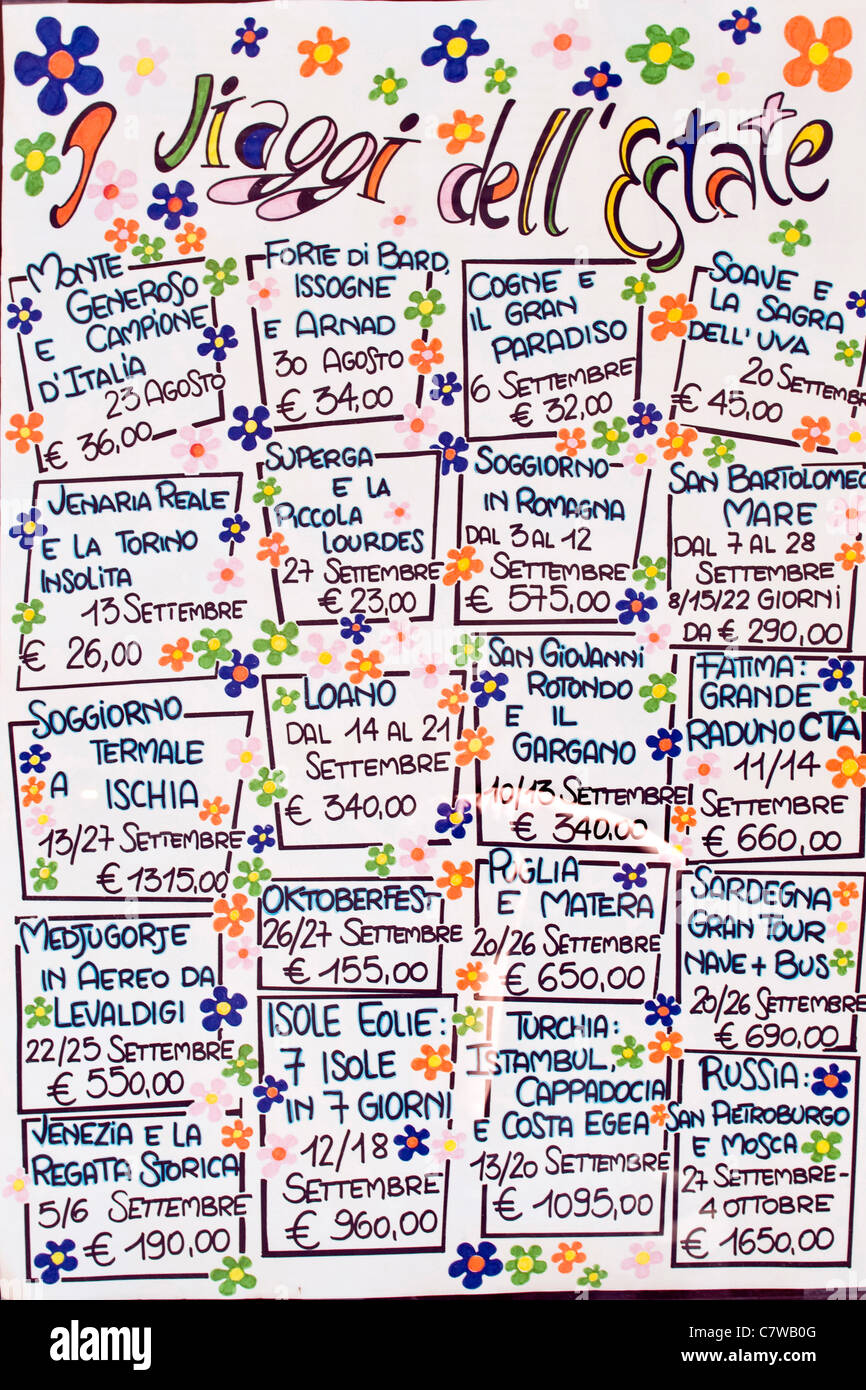 I Viaggi dell'Estate
MONTE
GENEROSO
E CAMPIONE
D'ITALIA
23 AGOSTO
€ 36,00
FORTE DI BARD,
ISSOGNE
E ARNAD
30 AGOSTO
€ 34,00
COGNE E
IL GRAN
PARADISO
6 SETTEMBRE
€ 32,00
SOAVE E
LA SAGRA
DELL'UVA
20 SETTEMBRE
€ 45,00
VENARIA REALE
E LA TORINO
INSOLITA
13 SETTEMBRE
€ 26,00
SUPERGA
E LA
PICCOLA
LOURDES
27 SETTEMBRE
€ 23,00
SOGGIORNO
IN ROMAGNA
DAL 3 AL 12
SETTEMBRE
€ 575,00
SAN BARTOLOMEO
MARE
DAL 7 AL 28
SETTEMBRE
8/15/22 GIORNI
DA € 290,00
SOGGIORNO
TERMALE
A ISCHIA
13/27 SETTEMBRE
€ 1315,00
LOANO
DAL 14 AL 21
SETTEMBRE
€ 340,00
SAN GIOVANNI
ROTONDO
E IL
GARGANO
10/13 SETTEMBRE
€ 340,00
FATIMA:
GRANDE
RADUNO CTA
11/14
SETTEMBRE
€ 660,00
MEDJUGORJE
IN AEREO DA
LEVALDIGI
22/25 SETTEMBRE
€ 550,00
OKTOBERFEST
26/27 SETTEMBRE
€ 155,00
PUGLIA
E MATERA
20/26 SETTEMBRE
€ 650,00
SARDEGNA
GRAN TOUR
NAVE + BUS
20/26 SETTEMBRE
€ 690,00
VENEZIA E LA
REGATA STORICA
5/6 SETTEMBRE
€ 190,00
ISOLE EOLIE:
7 ISOLE
IN 7 GIORNI
12/18
SETTEMBRE
€ 960,00
TURCHIA:
ISTAMBUL,
CAPPADOCIA
E COSTA EGEA
13/20 SETTEMBRE
€ 1095,00
RUSSIA:
SAN PIETROBURGO
E MOSCA
27 SETTEMBRE-
4 OTTOBRE
€ 1650,00
alamy
Image ID: C7WB0G
www.alamy.com